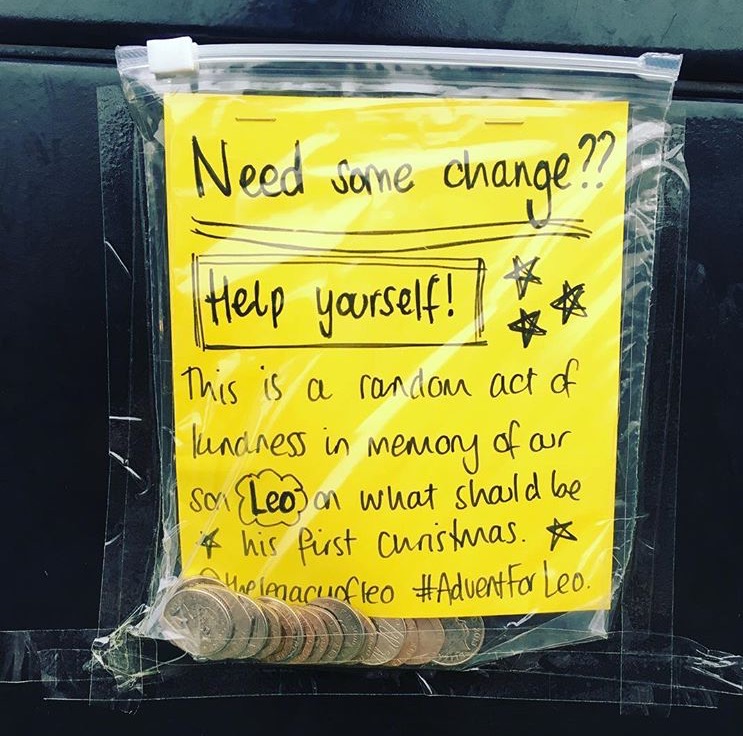 Need some change??
Help yourself!
This is a random act of
kindness in memory of our
son Leo on what should be
his first Christmas.
@thelegacyofleo #AdventForLeo.